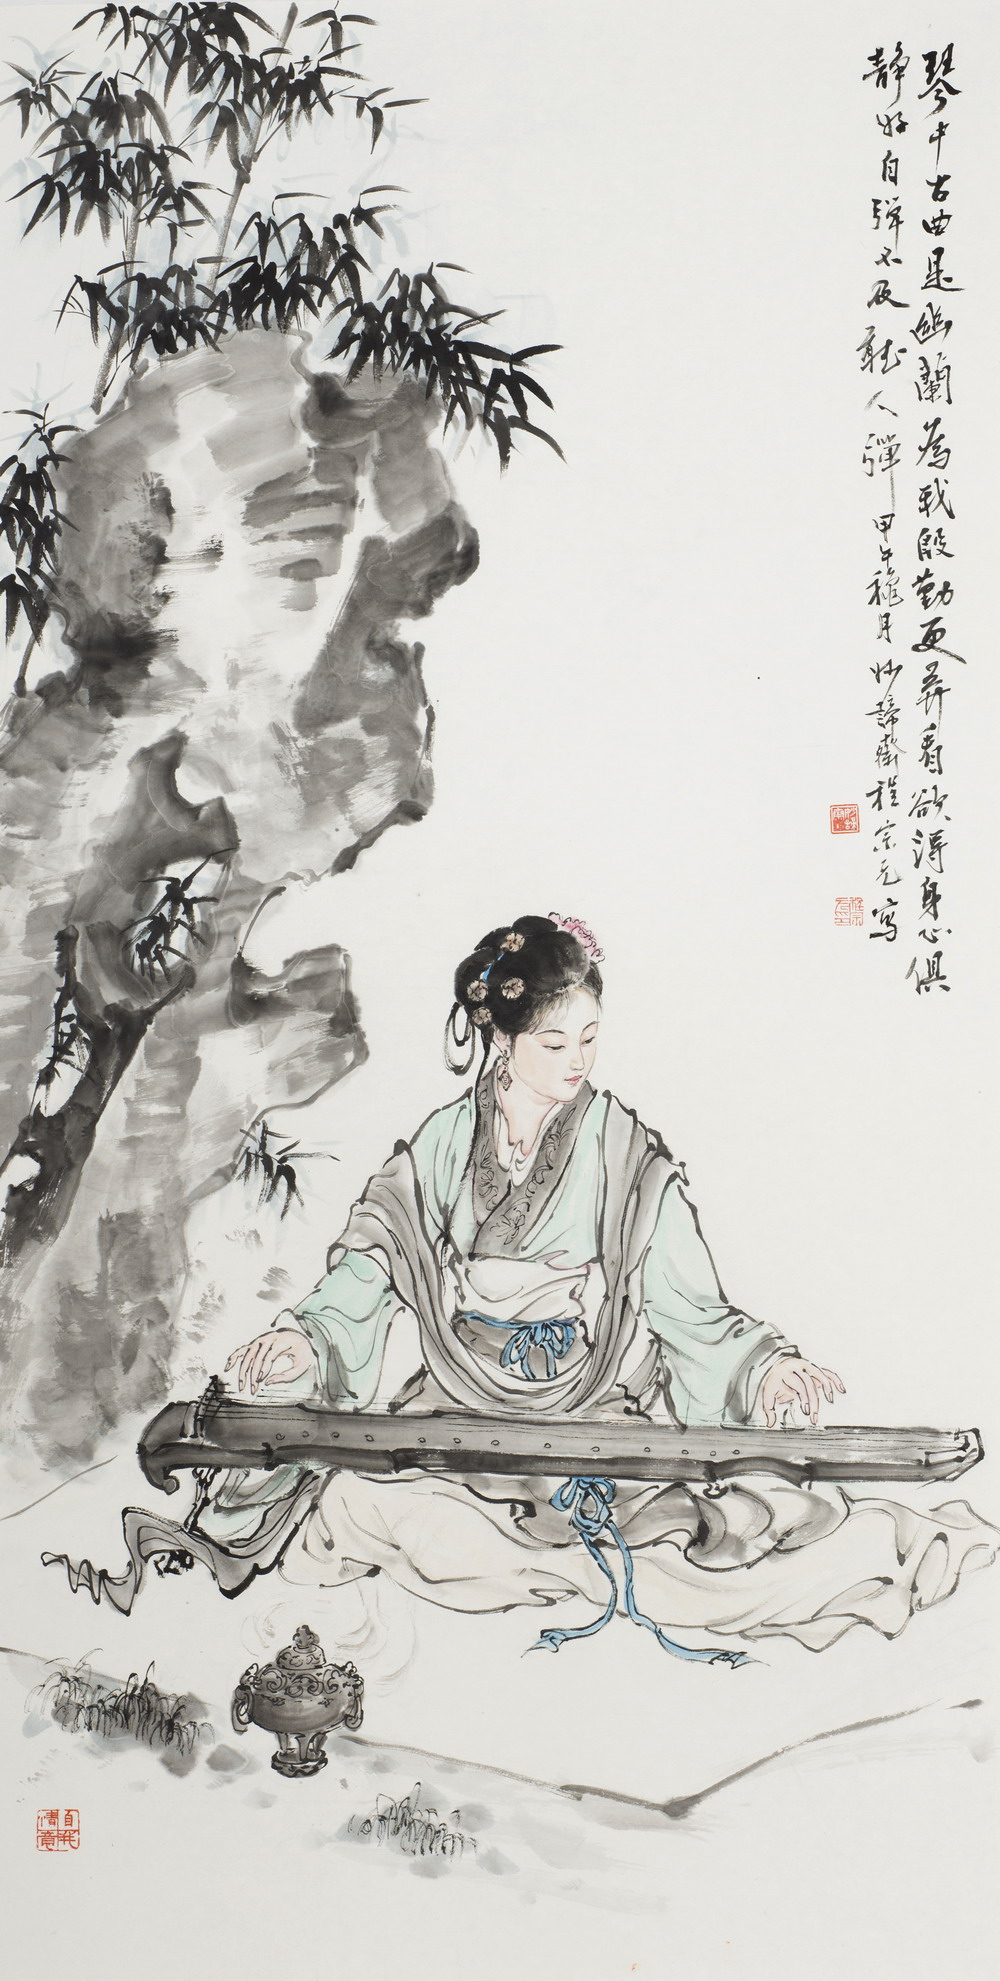 琴中古曲是幽蘭為我殷勤更弄看欲得身心俱
靜好自彈不及聽人彈甲午穐月妙諦齋程宗元寫